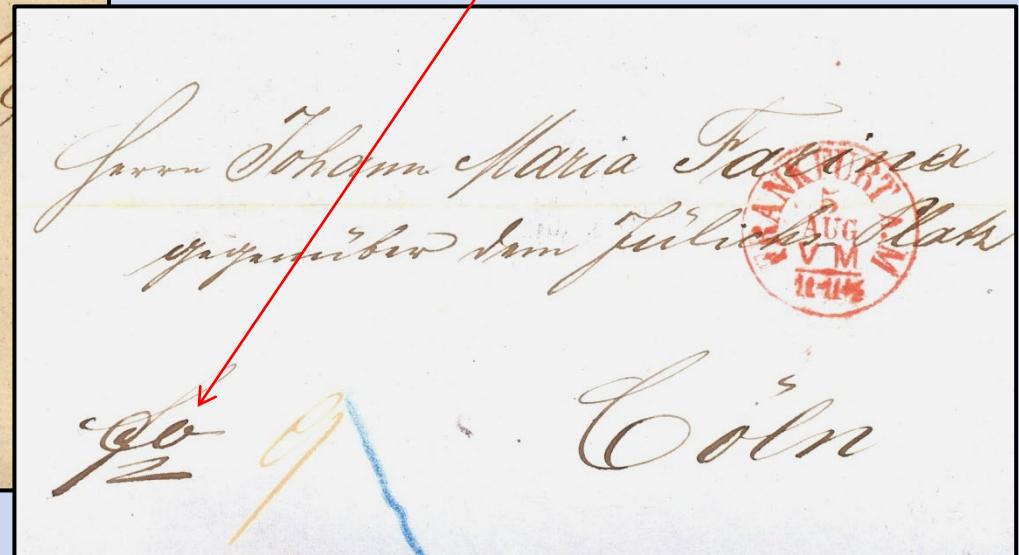 Herrn Johann Maria Farina
gegenüber dem Jülichs Platz
FRANKFURT A.M
5
AUG
V M
Cöln
9